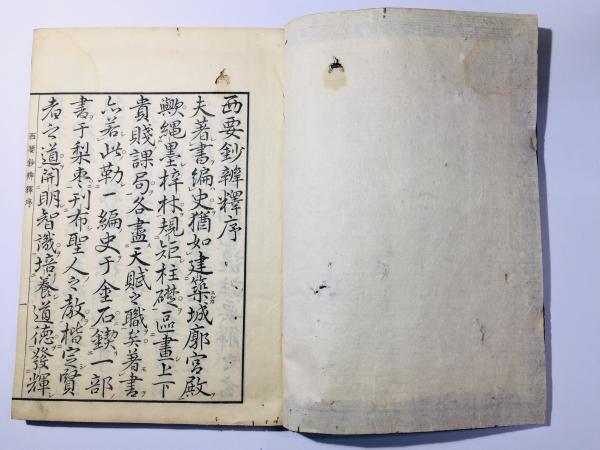 西要鈔辨釋序
夫著書編史猶如建築城廓宮殿
歟繩墨梓林規矩柱礎區畫上下
貴賤課局各盡天賦之職矣著書
亦若此勒一編史于金石鍥一部
書于梨棗刊布聖人之教楷定賢
者之道開明智識培養道德發輝
西要鈔辨釋序